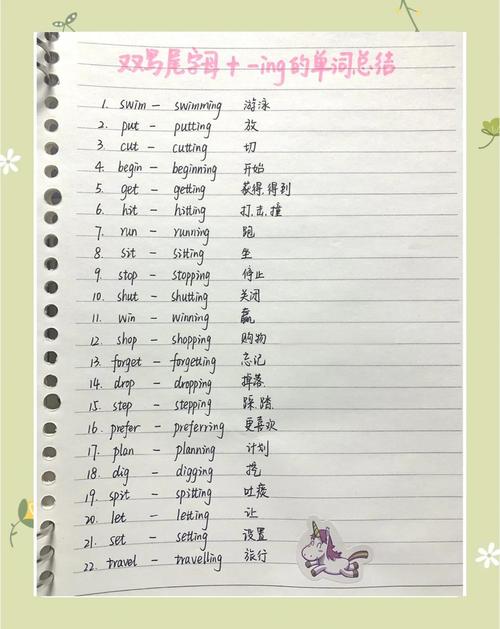 双写尾字母 + -ing的单词总结
1. swim - swimming 游泳
2. put - putting 放
3. cut - cutting 切
4. begin - beginning 开始
5. get - getting 获得.得到
6. hit - hitting 打.击.撞
7. run - running 跑
8. sit - sitting 坐
9. stop - stopping 停止
10. shut - shutting 关闭
11. win - winning 赢
12. shop - shopping 购物
13. forget - forgetting 忘记
14. drop - dropping 掉落.
15. step - stepping 踩.踏.
16. prefer - preferring 更喜欢
17. plan - planning 计划
18. dig - digging 挖
19. spit - spitting 吐痰
20. let - letting 让
21. set - setting 设置
22. travel - travelling 旅行